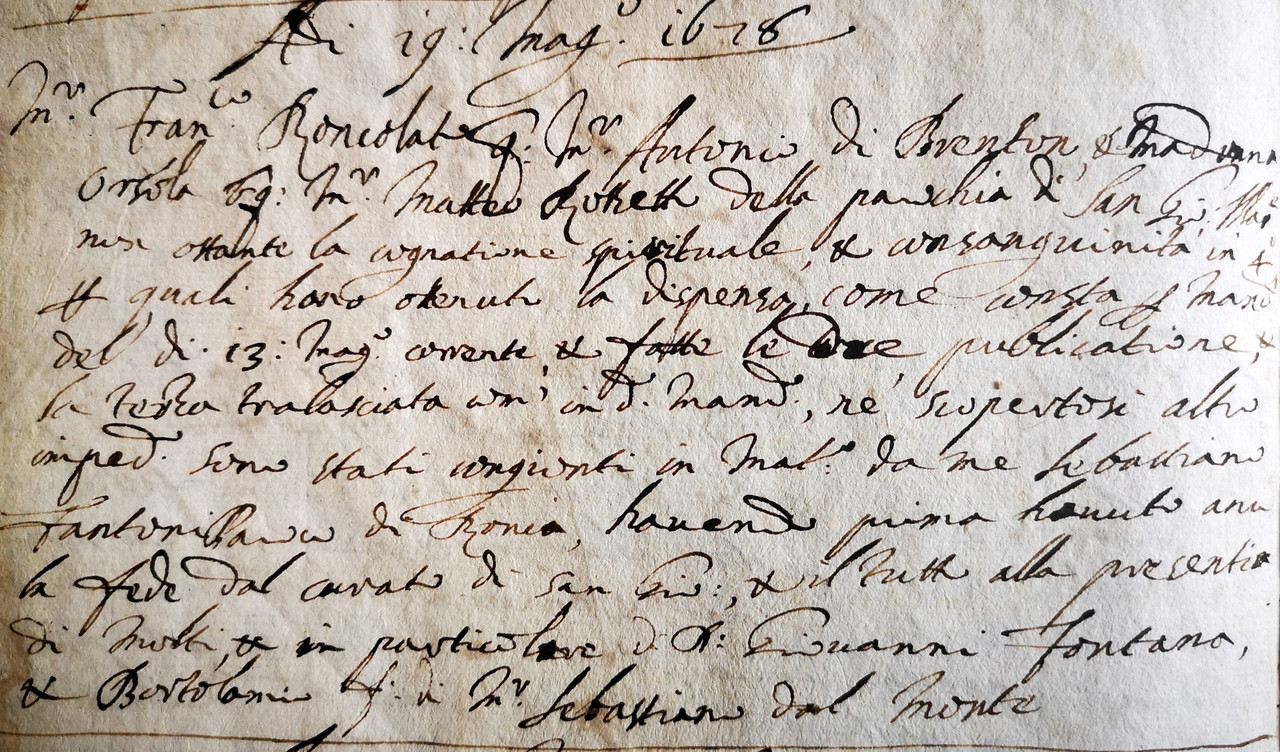 Adi 19: Mag.o 1678
M.r Fran.co Roncolato q: M.r Antonio di Brenton, & Madonna
Orsola q: M.r Matteo della parochia di San Gio:
non ostante la cognatione spirituale, & consanguinità in 4.o
quali hano otenuto la dispensa, come consta p mand.o
del di 13: Mag.o corrente, & fatte le Due publicatione, &
la terza tralasciata com' in d.o mand.o, ne scopertosi altro
imped.o sono stati congionti in Mat.o da me Sebastiano
Fantoni di Roncà, havendo prima havuto anco
la fede dal curato di San Gio:, & il tutto alla presentia
di molti, & in particolare d Giovanni Fontana,
& Bortolamio f: di M.r Sebastiano dal Monte